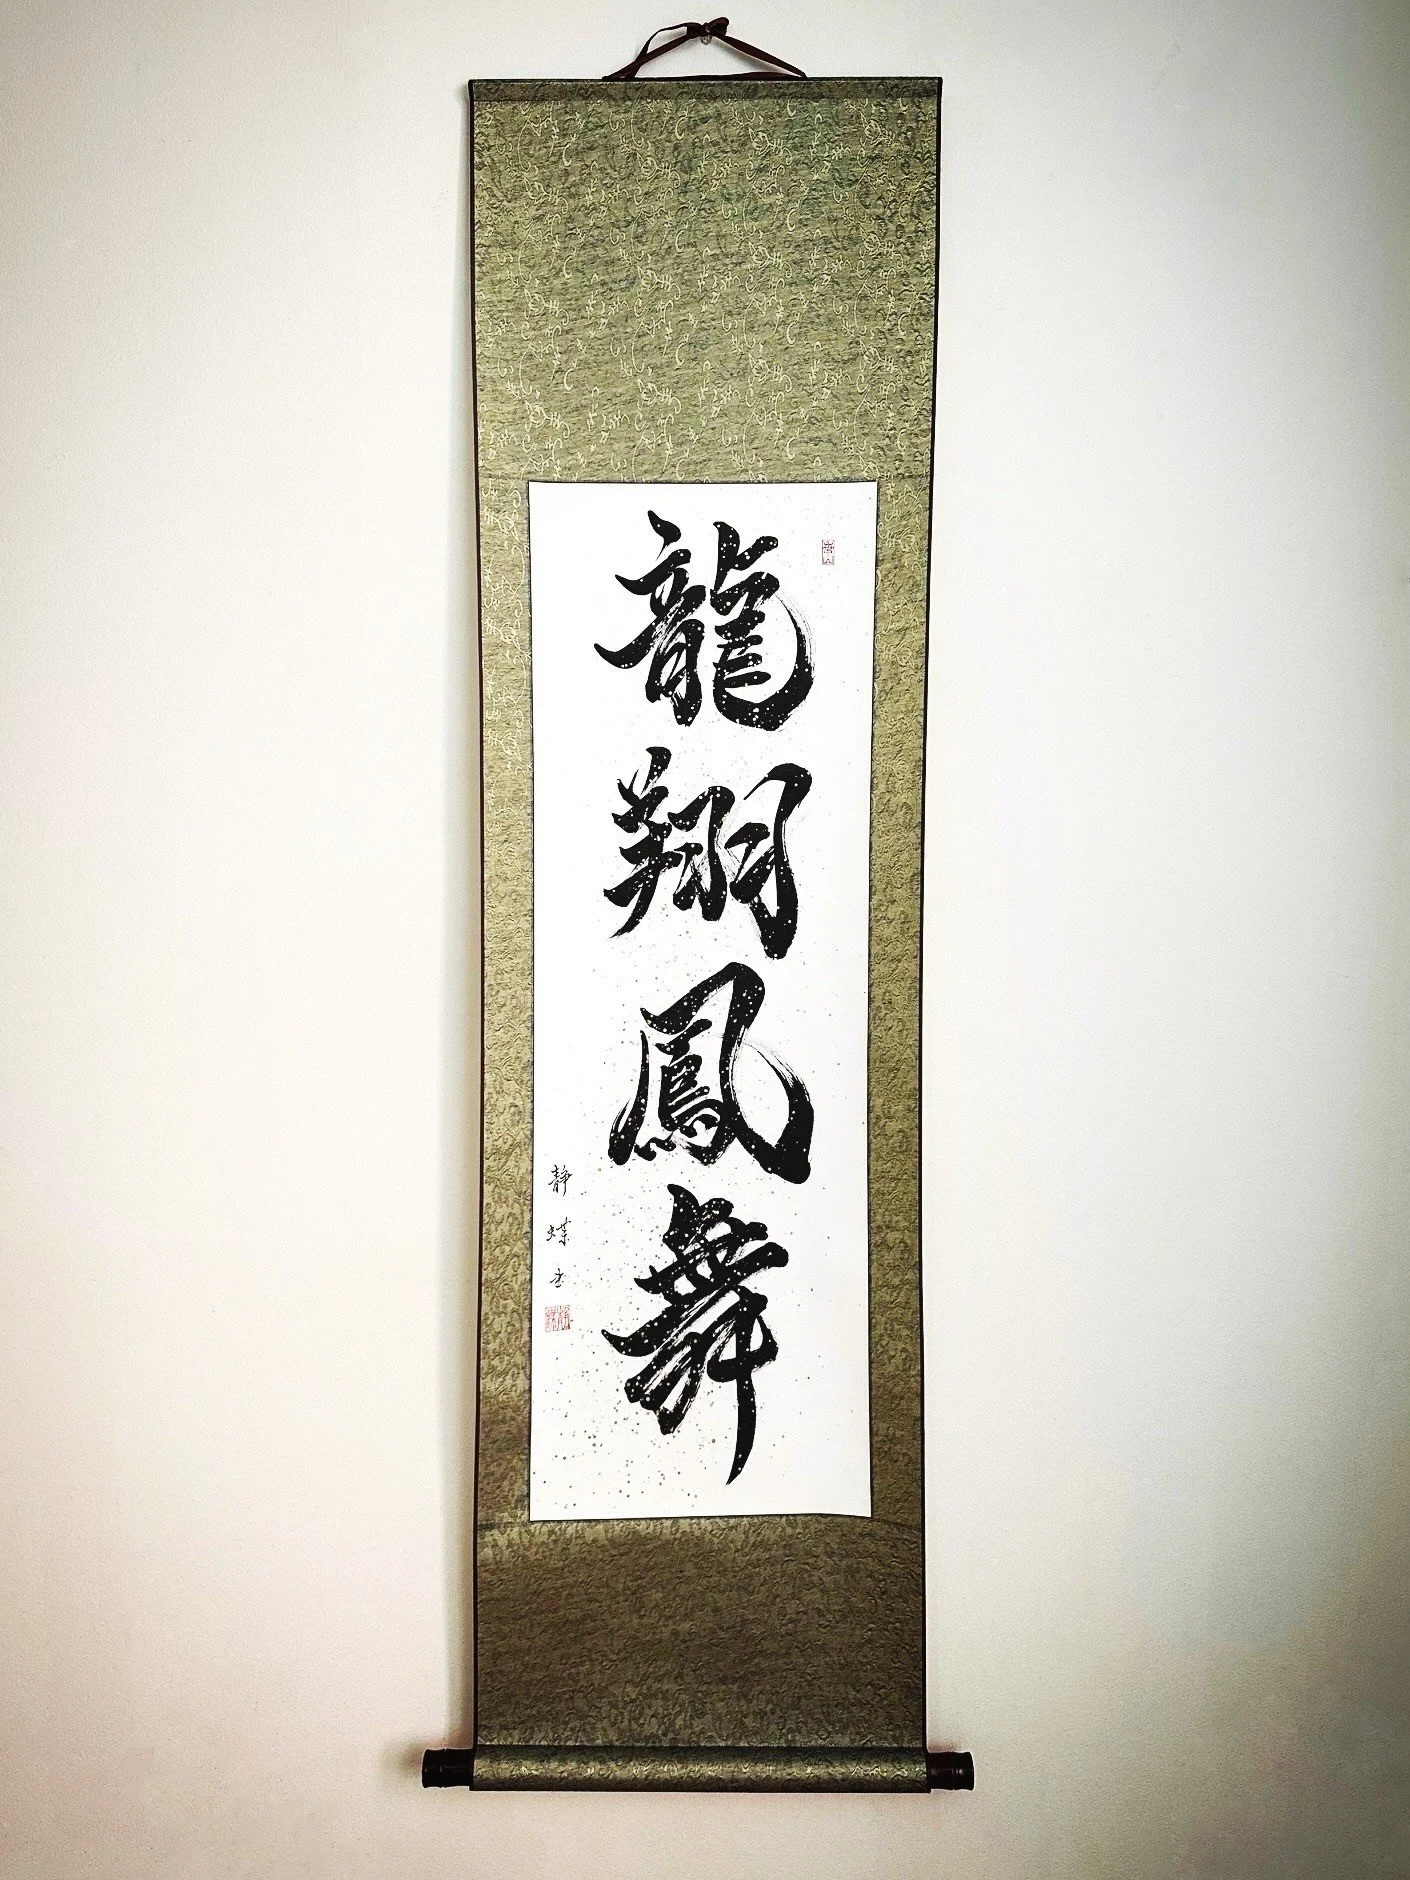 龍翔鳳舞
静蝶书